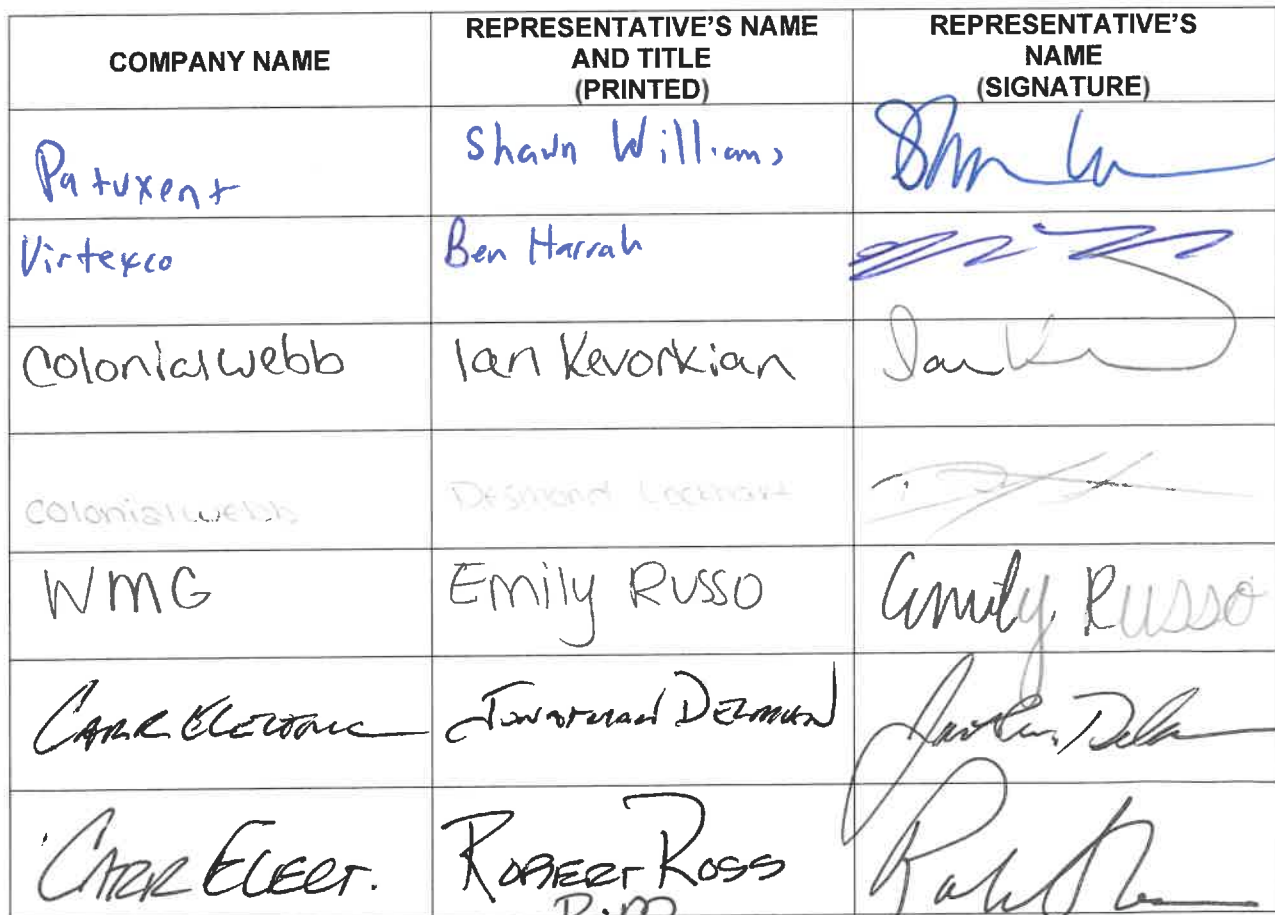 COMPANY NAME
REPRESENTATIVE'S NAME
AND TITLE
(PRINTED)
REPRESENTATIVE'S
NAME
(SIGNATURE)
Patuxent
Shawn Williams
Virtexco
Ben Harrah
Colonialwebb
Ian Kevorkian
Ian K
Colonialwebb
Desmond Lockhart
WMG
Emily Russo
Emily Russo
CARR ELECTRIC
CARR ELECT.
ROBERT ROSS